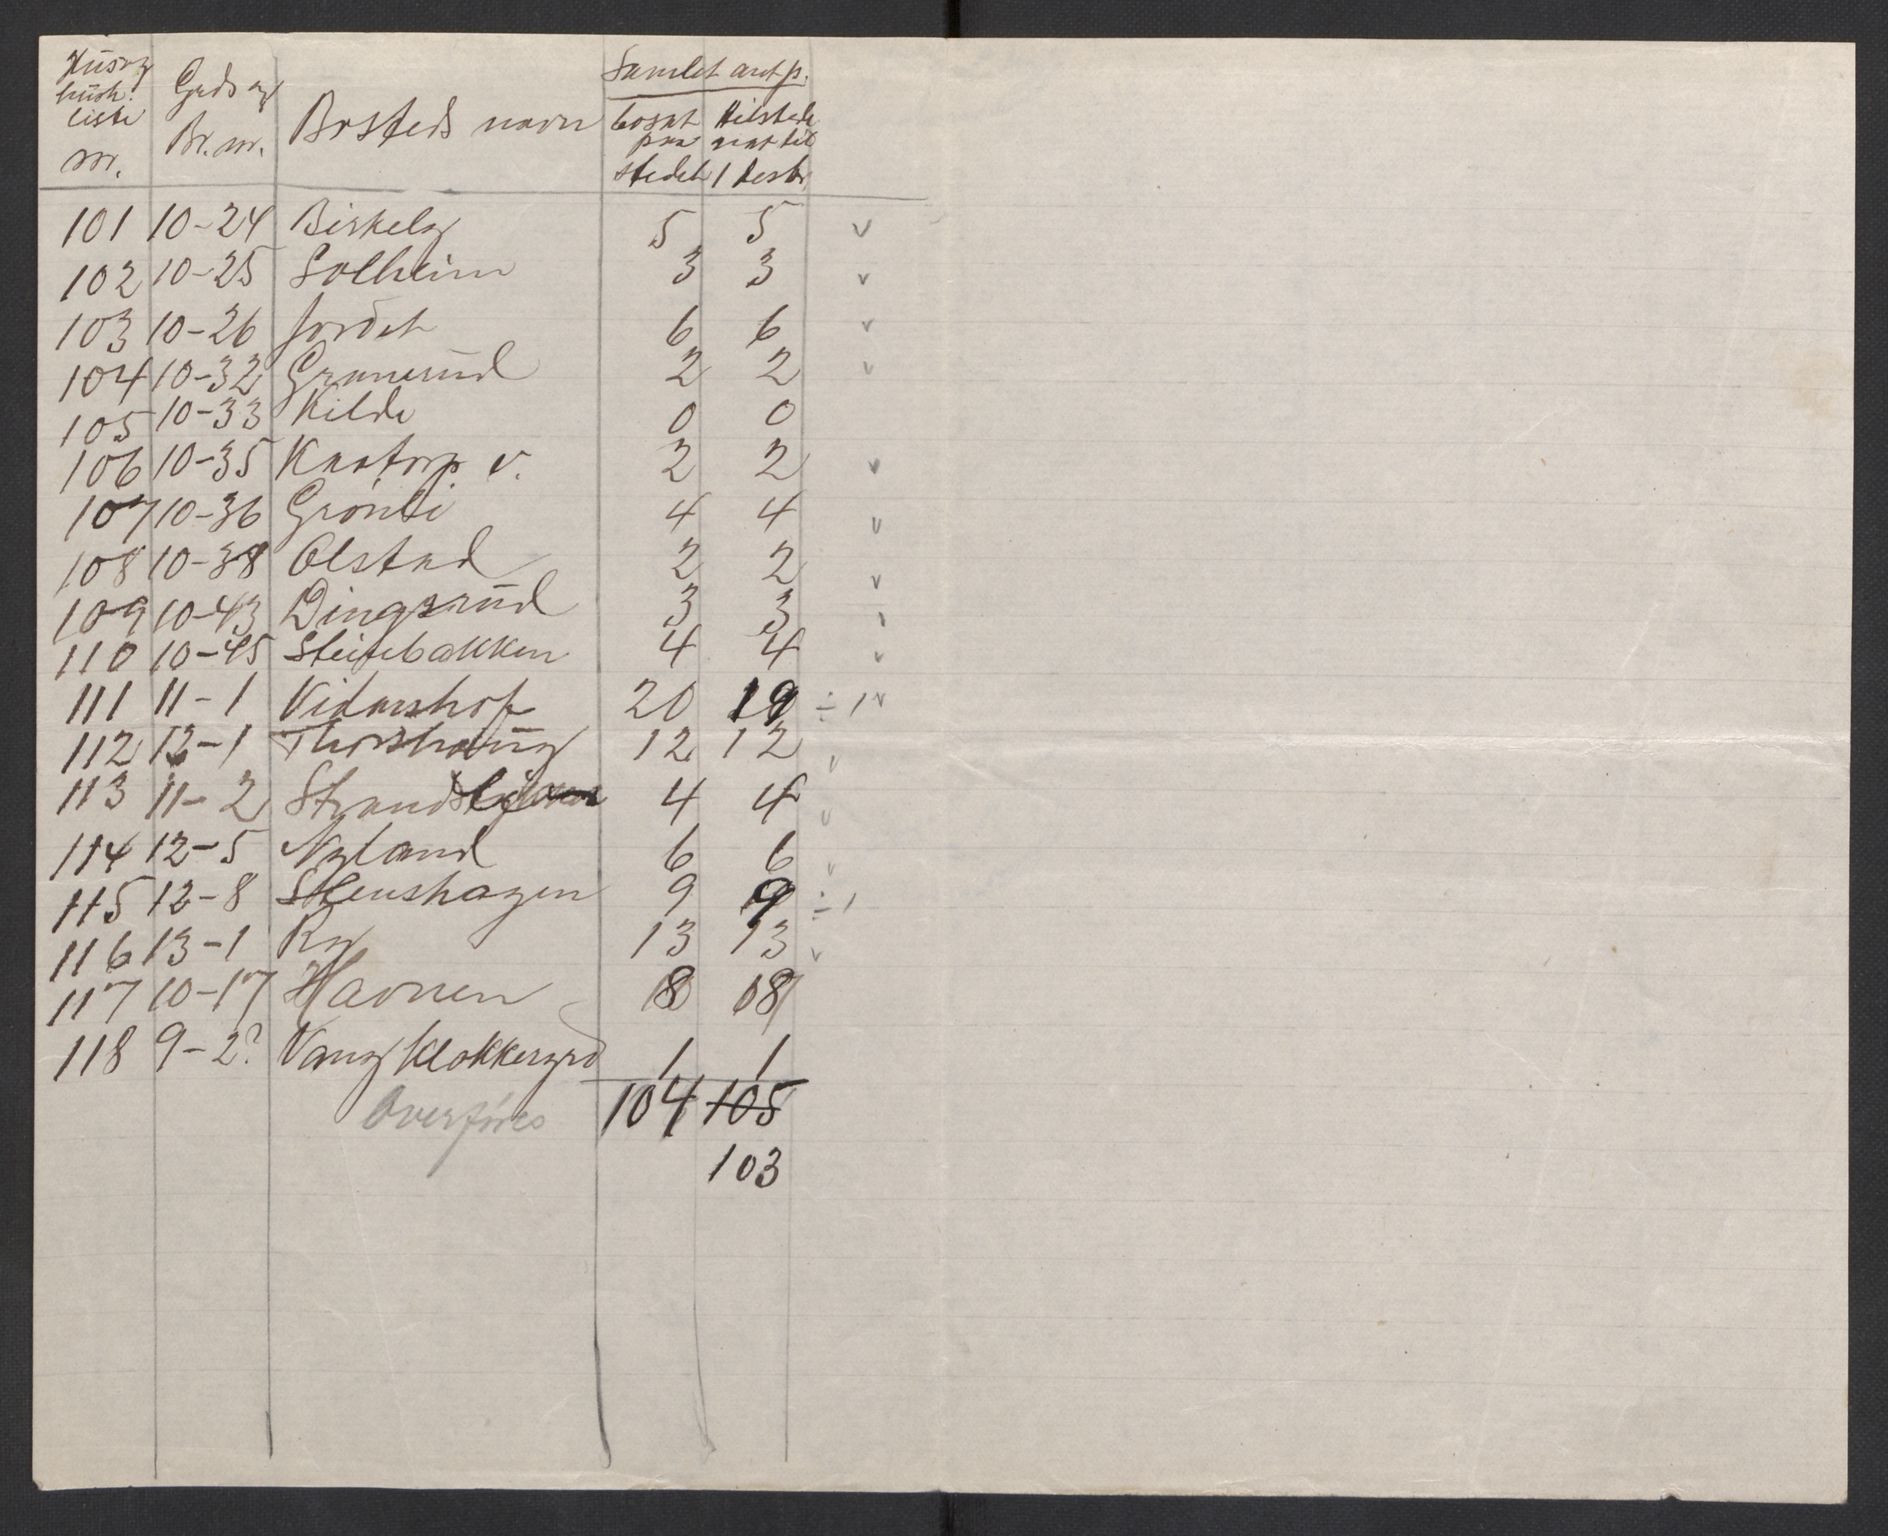 Hus og hush. liste nr. Grds og Br. nr. Bosteds navn Samlet ant p.
bosat paa stedet Tilstede nat til 1 desbr
101 10-24 Birkely 5 5 v
102 10-25 Solheim 3 3 v
103 10-26 Jordet 6 6 v
104 10-32 Granerud 2 2 v
105 10-33 Kilde 0 0
106 10-35 Knatorp v. 2 2 v
107 10-36 Grønli 4 4 v
108 10-38 Olstad 2 2 v
109 10-43 Dingsrud 3 3
110 10-45 Steinbakken 4 4 v
111 11-1 Vidarshof 20 19 ÷ 1 v
112 12-1 Thorshaug 12 12
113 11-2 4 4 v
114 12-5 Nyland 6 6 v
115 12-8 Stenshagen 9 9 ÷ 1
116 13-1 Ry 13 13 v
117 10-17 Havnen 8 8
118 9-2? Vang Klokkergrd 1 1
Overføres 104 105
103